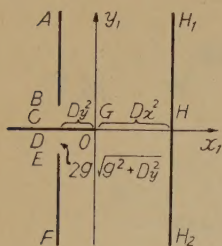 A y₁ H₁
B
C Dy² G Dx² H
D O x₁
E 2g√g²+Dy²
F H₂